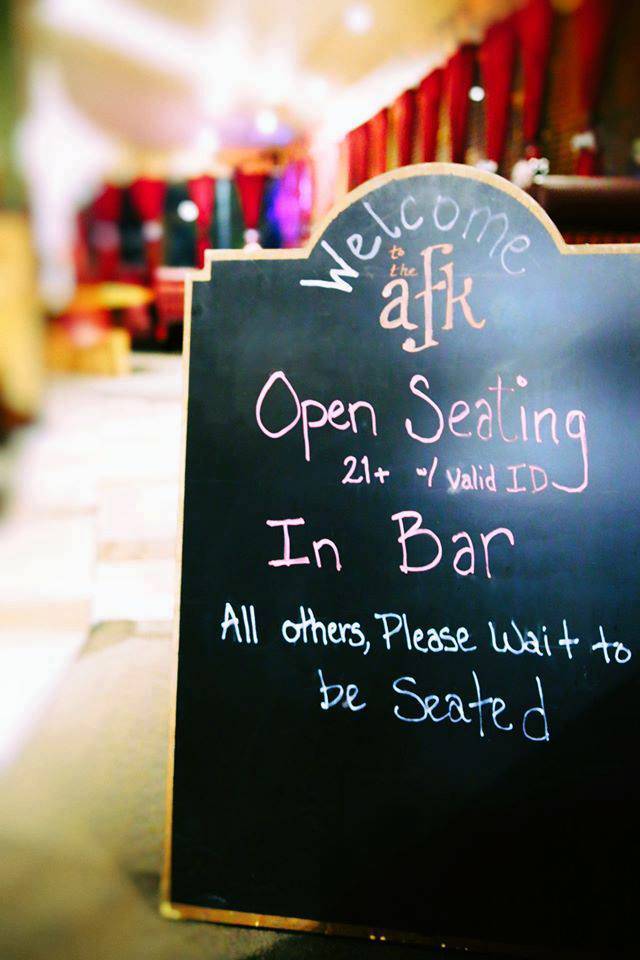 Welcome
to
the
afk
Open Seating
21+ w/ Valid ID
In Bar
All others, Please Wait to
be Seated